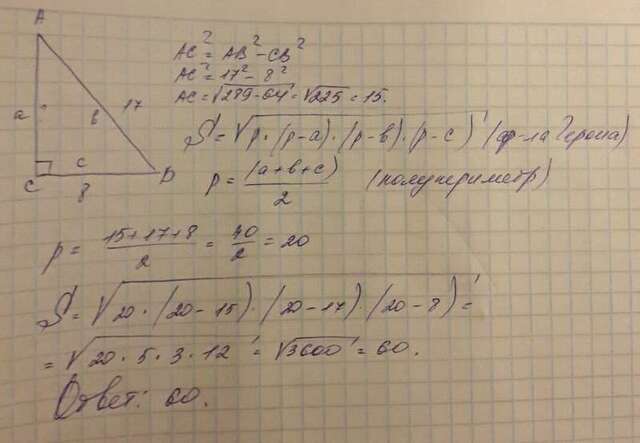 A
a
в
17
с
C
B
8
AC² = AB² - CB²
AC² = 17² - 8²
AC = √289-64 = √225 = 15.
S = √p·(p-a)·(p-в)·(p-c) (ф-ла Герона)
p = (a+в+c)/2 (полупериметр)
p = 15+17+8/2 = 40/2 = 20
S = √20·(20-15)·(20-17)·(20-8) =
= √20·5·3·12 = √3600 = 60.
Ответ: 60.